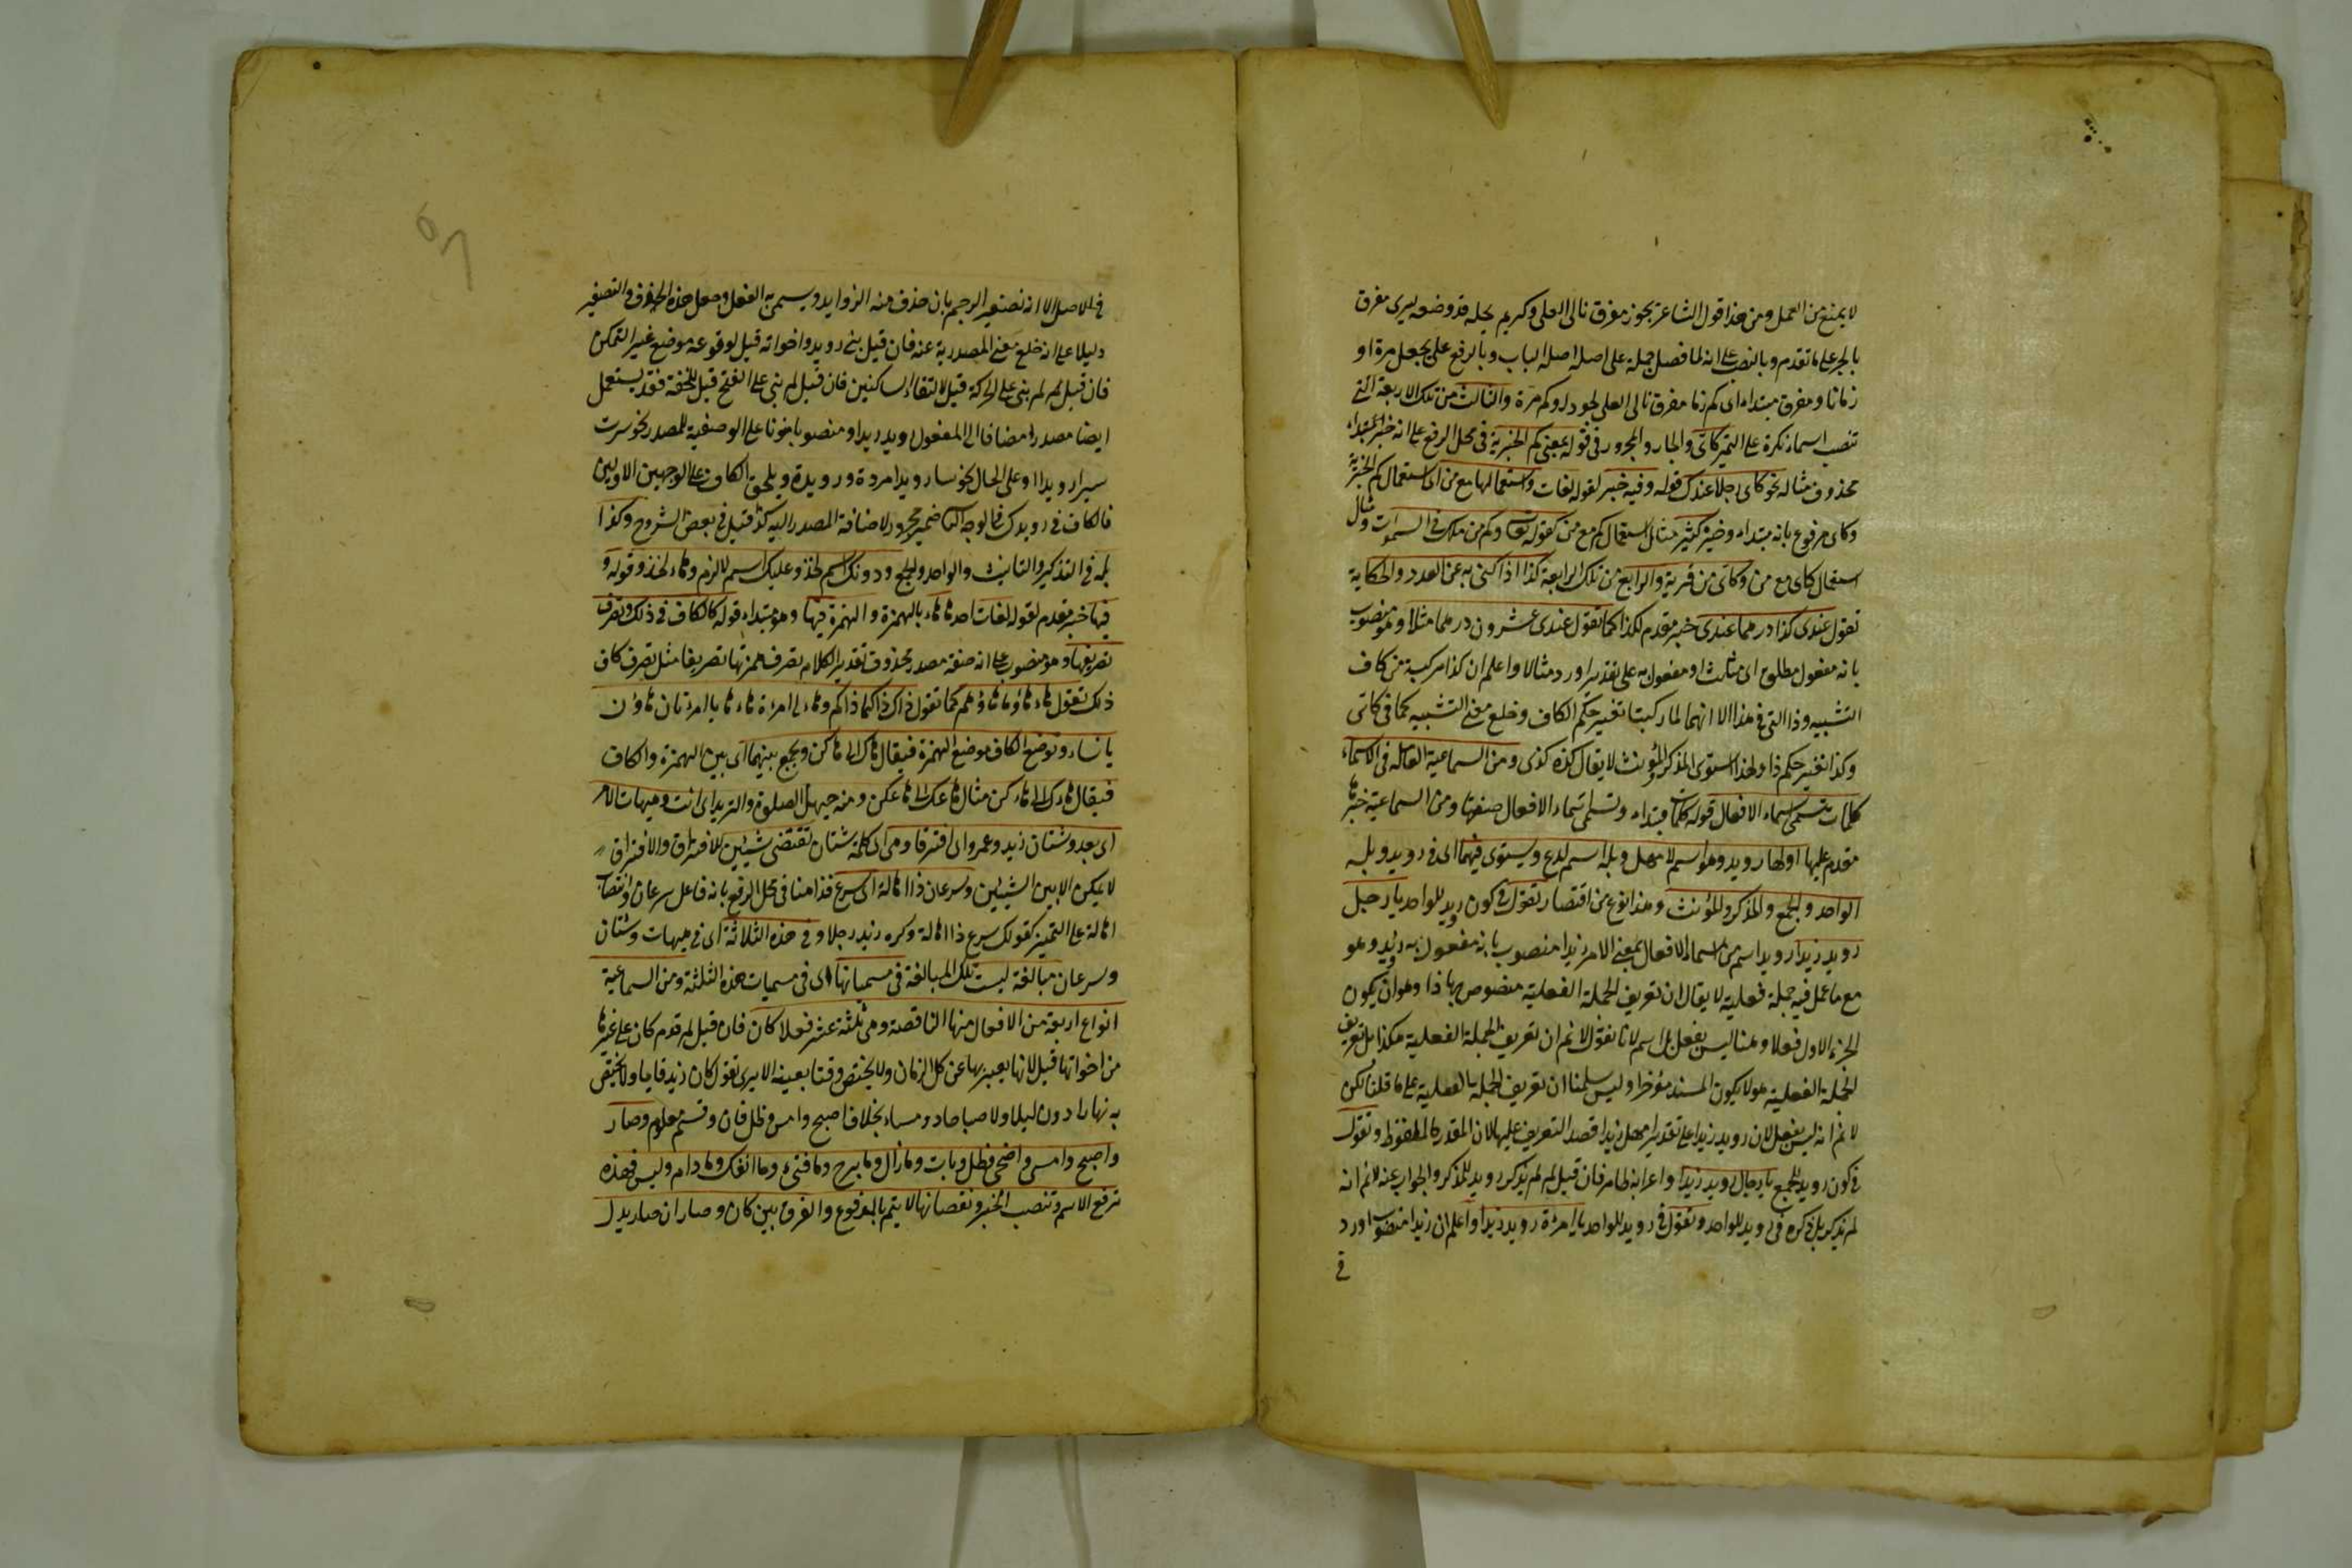 لا يمنع من العمل ومن هذا قول الشاعر بجوز مفرق نال العلى وكريم بخله قد وضعه يسرى مفرق
بالجر على ما تقدم وبالنصب على انه لما فصل جملة على اصله اصله الباب وبالرفع على بجعل مرة او
زمانا ومفرق مبتداء اى كم زمانا مفرق نال العلى لجود او كم مرة والثالث من تلك الاربعة التى
تنصب اسماء نكرة على التميز كاتى والجار والمجرور فى قوله بمعنى كم الخبرية فى محل الرفع على انه خبر المبتداء
محذوف مثاله نحو كاى رجلا عندك قوله وفيه خبر لقوله لغات واستعمالها مع من اى استعمال كم الخبرية
وكاى مرفوع بانه مبتداء وخبره كثير مثال استعمال كم مع من كقوله تعالى وكم من ملك فى السموات ومثال
استعمال كاى مع من وكاتى من قرية والرابع من تلك الرابعة كذا اذا كنى به عن العدد والحكاية
تقول عندى كذا درهما عندى خبر مقدم لكذا كما تقول عندى عشرون درهما مثلا وهو منصوب
بانه مفعول مطلق اى مثلت او مفعول به على تقدير اورد مثالا واعلم ان كذا مركبة من كاف
التشبيه وذا التى فى هذا الا انهما لما ركبتا تغير حكم الكاف وخلع معنى التشبيه كما فى كاتى
وكذا تغير حكم ذا ولهذا استوى المذكر والمؤنث لا يقال كذه كذى ومن السماعية العاملة فى الاسماء
كلمات تسمى اسماء الافعال قوله كلمات مبتداء وتسمى اسماء الافعال صفتها ومن السماعية خبرها
مقدم عليها اولها رويد وهو اسم لامهل وبله اسم لدع ويستوى فيهما اى فى رويد وبله
الواحد والجمع والمذكر والمؤنث وهذا نوع من اقتصار تقول فى كون رويد للواحد يا رجل
رويد زيدا رويد اسم من اسماء الافعال بمعنى الامر زيدا منصوب بانه مفعول به رويد وهو
مع ما عمل فيه جملة فعلية لا يقال ان تعريف الجملة الفعلية منصوص بهاذا وهو ان يكون
الجزء الاول فعلا وهنا ليس بفعل بل اسم لانا نقول لانم ان تعريف الجملة الفعلية هكذا بل تعريف
الجملة الفعلية هو لا يكون المسند مؤخرا وليس سلمنا ان تعريف الجملة بالفعلية على ما قلنا لكن
لانم انه ليس بفعل لان رويد زيدا على تقدير امهل زيدا قصد التعريف عليها لان المقدر كالملفوظ وتقول
فى كون رويد للجمع يا رجال رويد زيدا واعرابه ظاهر فان قيل لم لم يذكر رويد للمذكر والجواب عنه لانم انه
لم يذكر بل ذكره فى رويد للواحد وتقول فى رويد للواحد يا امرءة رويد زيدا واعلم ان زيدا منصوب اورد
فى
فى الاصل الا انه تصغير الرجيم بان حذف منه الزوايد وسمى به الفعل وجعل هذه الحذف والتصغير
دليلا على انه خلع معنى المصدرية عنه فان قيل بنى رويد واخواته قيل لوقوعه موضع غير المتمكن
فان قيل لم لم بنى على الحركة قيل لالتقاء الساكنين فان قيل لم بنى على الفتح قيل للخفة فقد يستعمل
ايضا مصدرا مضافا الى المفعول رويد زيد او منصوبا منونا على الوصفية للمصدر نحو سرت
سيرا رويدا او على الحال نحو سار رويدا مردة ورويدة ويلحق الكاف على الوجهين الاولين
فالكاف فى رويدك فى الوجه الثانى ضمير مجرور لاضافة المصدر اليه كذا قيل فى بعض الشروح وكذا
بله فى التذكير والتانيث والواحد والجمع ودونك اسم لخذ وعليك اسم لالزم وهاء لخذ وقوله و
فيها خبر مقدم لقوله لغات احدها هاء بالهمزة والهمزة فيها وهو مبتداء قوله كالكاف فى ذلك وتصرف
تصريفها وهو منصوب على انه صفة مصدر محذوف تقدير الكلام تصرف همزتها تصريفا مثل تصرف كاف
ذلك تقول هاء هاؤما هاؤم كما تقول ذاك ذاكما ذاكم وهاء يا امرءة هاء هايا امرءتان هاؤن
يا نساء وتوضع الكاف موضع الهمزة فيقال هاك الى هاكن ويجمع بينهما اى بين الهمزة والكاف
فيقال هاءك الى هاءكن مثال هاءك الى هاءكن ومنه حيهل الصلوة والثريد اى ائت وهيهات الامر
اى بعد وشتان زيد وعمرو اى افترقا وهى اى كلمة شتان تقتضى شيئين للافتراق والافتراق
لا يمكن الا بين الشيئين وسرعان ذا اهالة اى سرع فذا هنا فى محل الرفع بانه فاعل سرعان وانتصاب
اهالة على التميز كقولك سرع ذا اهالة وكره زيد رجلا وفى هذه الثلاثة اى فى هيهات وشتان
وسرعان مبالغة ليست تلك المبالغة فى مسمياتها اى فى مسميات هذه الثلثة ومن السماعية
انواع اربعة من الافعال منها الناقصة وهى ثلثة عشر فعلا كان فان قيل لم قدم كان على غيرها
من اخواتها قيل لانها يعبر بها عن كل الزمان ولا يختص وقتا بعينه الا يرى تقول كان زيد قايما ولا يختص
به نهارا دون ليلا ولا صباحا دون مساء بخلاف اصبح وامسى وظل فان وقتهم معلوم وصار
واصبح وامسى واضحى وظل وبات وما زال وما برح وما فتىء وما انفك وما دام وليس فهذه
ترفع الاسم وتنصب الخبر ونقصانها لا يتم بالمرفوع والفرق بين كان وصار ان صار يدل